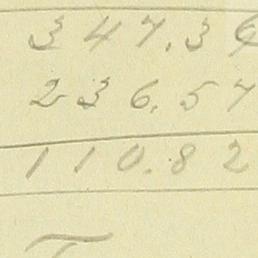 347.39
236.57
110.82